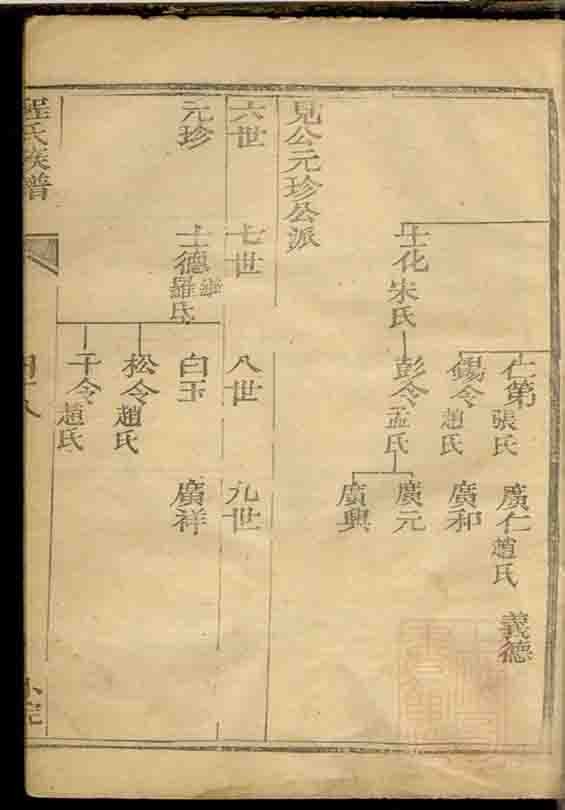 仁第 張氏 廣仁 趙氏 義德
錫令 趙氏 廣和
士化 宋氏 彭令 孟氏 廣元
廣興
見公元珍公派
六世 七世 八世 九世
元珍 士德 羅氏 白玉 廣祥
松令 趙氏
干令 趙氏
程氏族譜